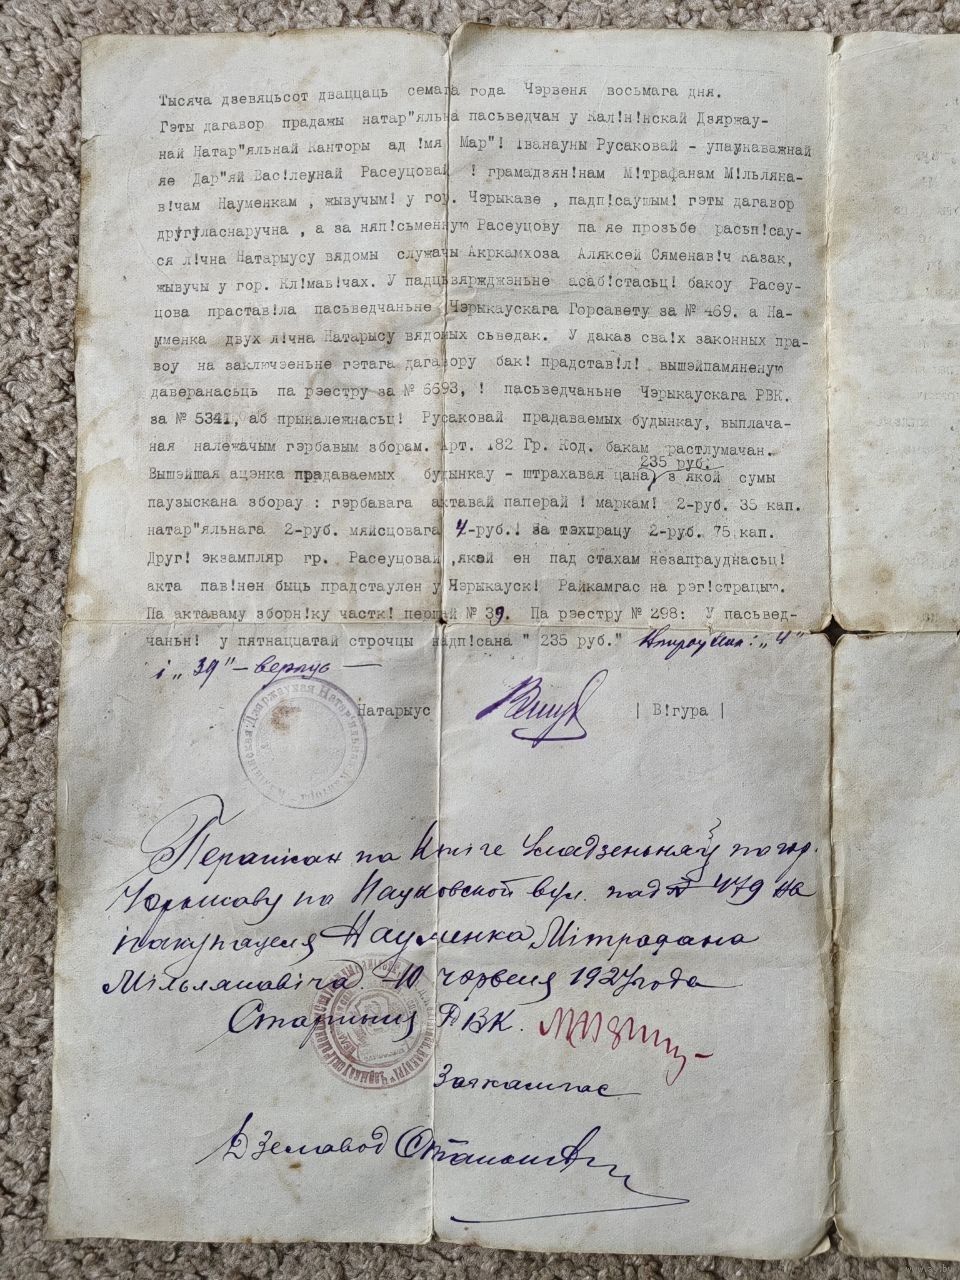 Тысяча дзевяцьсот дваццаць семага года Чэрвеня восьмага дня.
Гэты дагавор прадажы натар"яльна пасьведчан у Кал!н!нскай Дзяржаў-
най Натар"яльнай Канторы ад !мя Мар"! !ванауны Русаковай - упаунаважнай
яе Дар"яй Вас!леунай Расеуцовай ! грамадзян!нам М!трафанам М!льляка-
в!чам Науменкам , жывучым! у гор. Чэрыкаве , падп!саушым! гэты дагавор
другуласнаручна , а за няп!сьменную Расеуцову па яе прозьбе расьп!сау-
ся л!чна Натарыусу вядомы служачы Акркамхоза Аляксей Сяменав!ч Казак,
жывучы у гор. Кл!мав!чах. У падцьвярджэньне асаб!стасьц! бакоу Расеу-
цова прастав!ла пасьведчаньне Чэрыкаускага Горсавету за № 469. а На-
уменка двух л!чна Натарысу вядомых сьведак. У даказ сва!х законных пра-
воу на заключэеньне гэтага дагавору бак! прадстав!л! вышэйпамяненую
даверанасьць па рэестру за № 6693, ! пасьведчаньне Чэрыкаускага РВК.
за № 5341, аб прыкалежнасьц! Русаковай прадаваемых будынкау, выплача-
ная належачым гэрбавым зборам. Арт. 182 Гр. Код. бакам растлумачан.
235 руб.
Вышэйшая ацэнка прадаваемых будынкау - штрахавая цана, з якой сумы
паузыскана зборау : гэрбавага актавай паперай ! маркам! 2-руб. 35 кап.
натар"яльнага 2-руб. мяйсцовага 4-руб.! за тэхпрацу 2-руб. 75 кап.
Друг! экзампляр гр. Расеуцовай ,якой ен пад стахам незапрауднасьц!
акта пав!нен быць прадстаулен у Чэрыкауск! Райкамгас на рэг!страцыю.
Па актаваму зборн!ку частк! першай № 39. Па рэестру № 298: У пасьвед-
чаньн! у пятнаццатай строчцы надп!сана " 235 руб."  „4"
і „39" - верпус -
Натарыус | В!гура |
Перапісан па Кніге Уладзеньняў по гор.
Чэрыкаву по вул. под № 479 на
пакупацеля Науменка Мітрафана
Мільлякавіча. 10 чэрвеня 1927 года
Старшыня РВК.
Загкамгас
Дзелавод